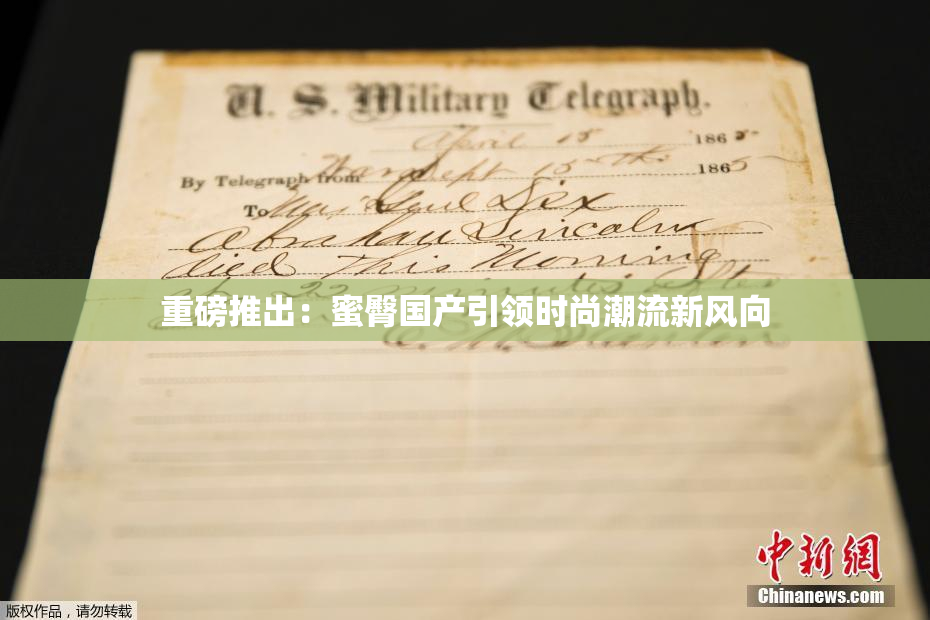 U. S. Military Telegraph.
April 15 1865
By Telegraph from War Dept 15th 1865
To Maj Genl Dix
Abraham Lincoln
died This Morning
at 22 minutes after
重磅推出：蜜臀国产引领时尚潮流新风向
中新网
Chinanews.com
版权作品，请勿转载